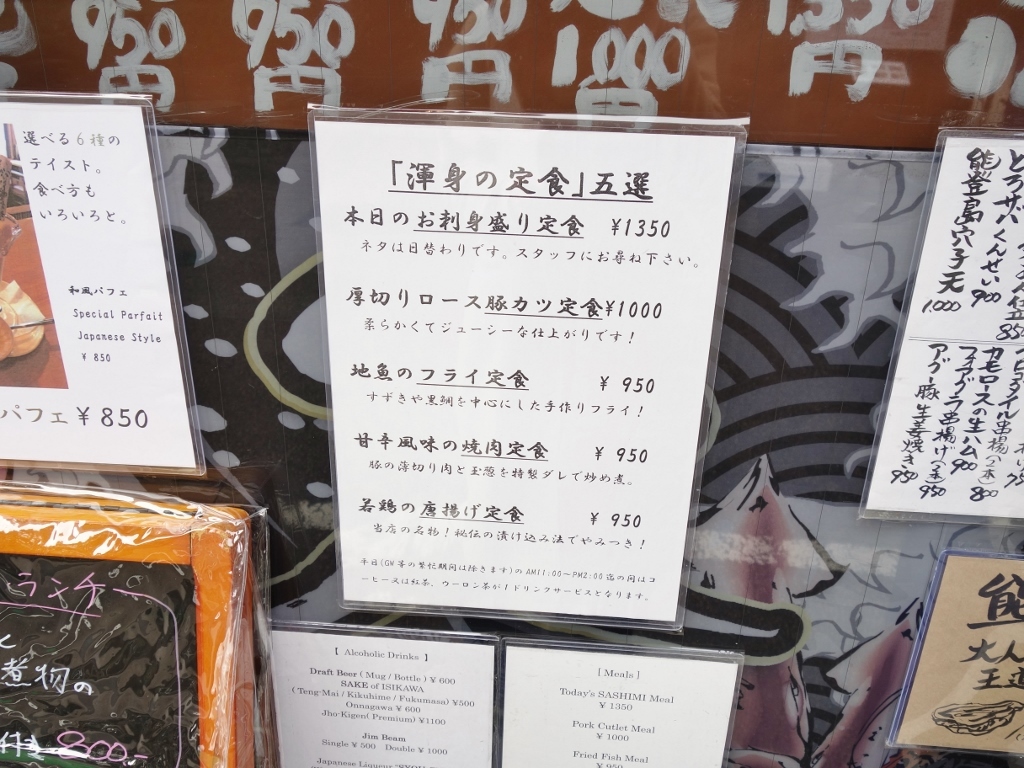 950
円
950
円
950
円
1000
円
1350
円
選べる6種の
テイスト。
食べ方も
いろいろと。
和風パフェ
Special Parfait
Japanese Style
¥850
パフェ¥850
「渾身の定食」五選
本日のお刺身盛り定食 ¥1350
ネタは日替わりです。スタッフにお尋ね下さい。
厚切りロース豚カツ定食¥1000
柔らかくてジューシーな仕上がりです！
地魚のフライ定食 ¥ 950
すずきや黒鯛を中心にした手作りフライ！
甘辛風味の焼肉定食 ¥ 950
豚の薄切り肉と玉葱を特製ダレで炒め煮。
若鶏の唐揚げ定食 ¥ 950
当店の名物！秘伝の漬け込み法でやみつき！
平日(GW等の繁忙期間は除きます)のAM11:00～PM2:00迄の間はコ
ーヒー又は紅茶、ウーロン茶が1ドリンクサービスとなります。
850
とうサバくんせい 900
能登島穴子天 1000
串揚(2本) 800
カモロースの生ハム 900
フォアグラ串揚げ(2本) 950
アグー豚生姜焼き 950
ランチ
煮物の
800
[ Alcoholic Drinks ]
Draft Beer ( Mug / Bottle ) ¥ 600
SAKE of ISIKAWA
( Teng-Mai / Kikuhime / Fukumasa) ¥500
Onnagawa ¥ 600
Jho-Kigen( Premium) ¥1100
Jim Beam
Single ¥ 500 Double ¥ 1000
Japanese Liqueur
[ Meals ]
Today's SASHIMI Meal
¥ 1350
Pork Cutlet Meal
¥ 1000
Fried Fish Meal
¥ 950
能
大人
王道